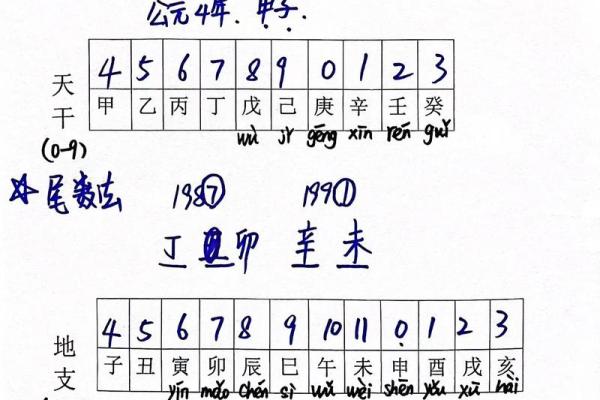 公元4年. 甲子.
4 5 6 7 8 9 0 1 2 3
天干 甲 乙 丙 丁 戊 己 庚 辛 壬 癸
(0-9) wù jǐ gēng xīn rén guǐ
尾数法 1987 1991
丁 卯 辛 未
4 5 6 7 8 9 10 11 0 1 2 3
地支 子 丑 寅 卯 辰 巳 午 未 申 酉 戌 亥
yín mǎo chén sì wǔ wèi shēn yǒu xū hài